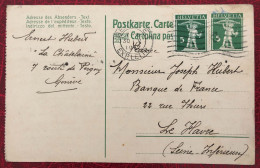 Adresse des Absenders - Text
Adresse de l'expéditeur - Texte
Indirizzo del mittente - Testo
Postkarte. Carte
Cartolina pos
HELVETIA
HELVETIA
Ernest Hubert
"Le Chatelaine"
7 route de
Genève
Monsieur Joseph Hubert
Banque de France
22 rue Thiers
Le Havre
(Seine Inférieure)